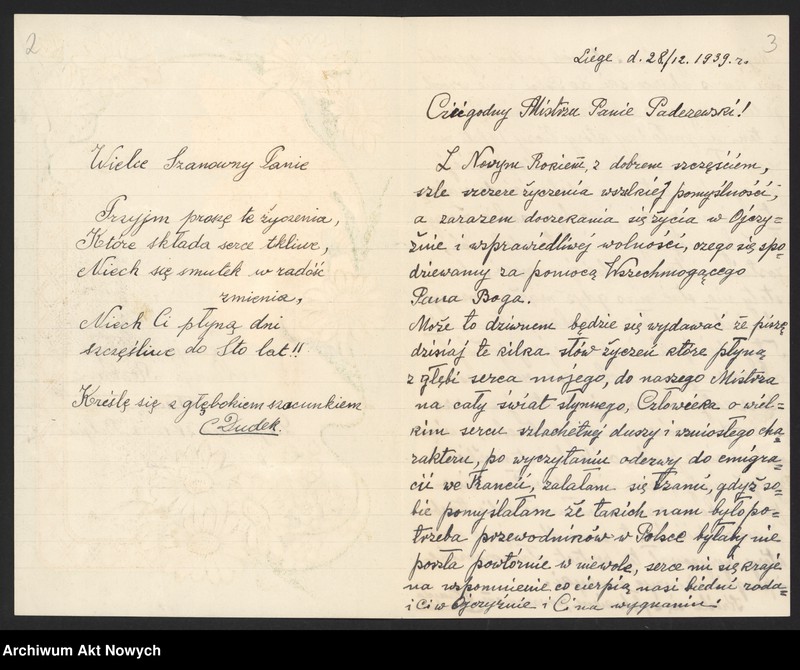 2
Wielce Szanowny Panie
Przyjm proszę te życzenia,
Które składa serce tkliwe,
Niech się smutek w radość
zmienia,
Niech Ci płyną dni
szczęśliwe do Sto lat!!
Kreślę się z głębokiem szacunkiem
C Dudek.
3
Liége d. 28/12. 1939. r.
Czcigodny Mistrzu Panie Paderewski!
Z Nowym Rokiem, z dobrem szczęściem,
szlę szczere życzenia wszelkiej pomyślności,
a zarazem doczekania się życia w Ojczy=
źnie i wsprawiedliwej wolności, czego się spo=
dziewamy za pomocą Wszechmogącego
Pana Boga.
Może to dziwnem będzie się wydawać że piszę
dzisiaj te kilka słów życzeń które płyną
z głębi serca mojego, do naszego Mistrza
na cały świat słynnego, Człowieka o wiel=
kim sercu szlachetnej duszy i wzniosłego cha=
rakteru, po wyczytaniu odezwy do emigra=
cii we Francii, zalałam się łzami, gdyż so=
bie pomyślałam że takich nam było po=
trzeba przewodników w Polsce byłaby nie
poszła powtórnie w niewole, serce mi się kraje
na wspomnienie co cierpią nasi biedni roda=
i Ci w Ojczyźnie i Ci na wygnaniu.
Archiwum Akt Nowych